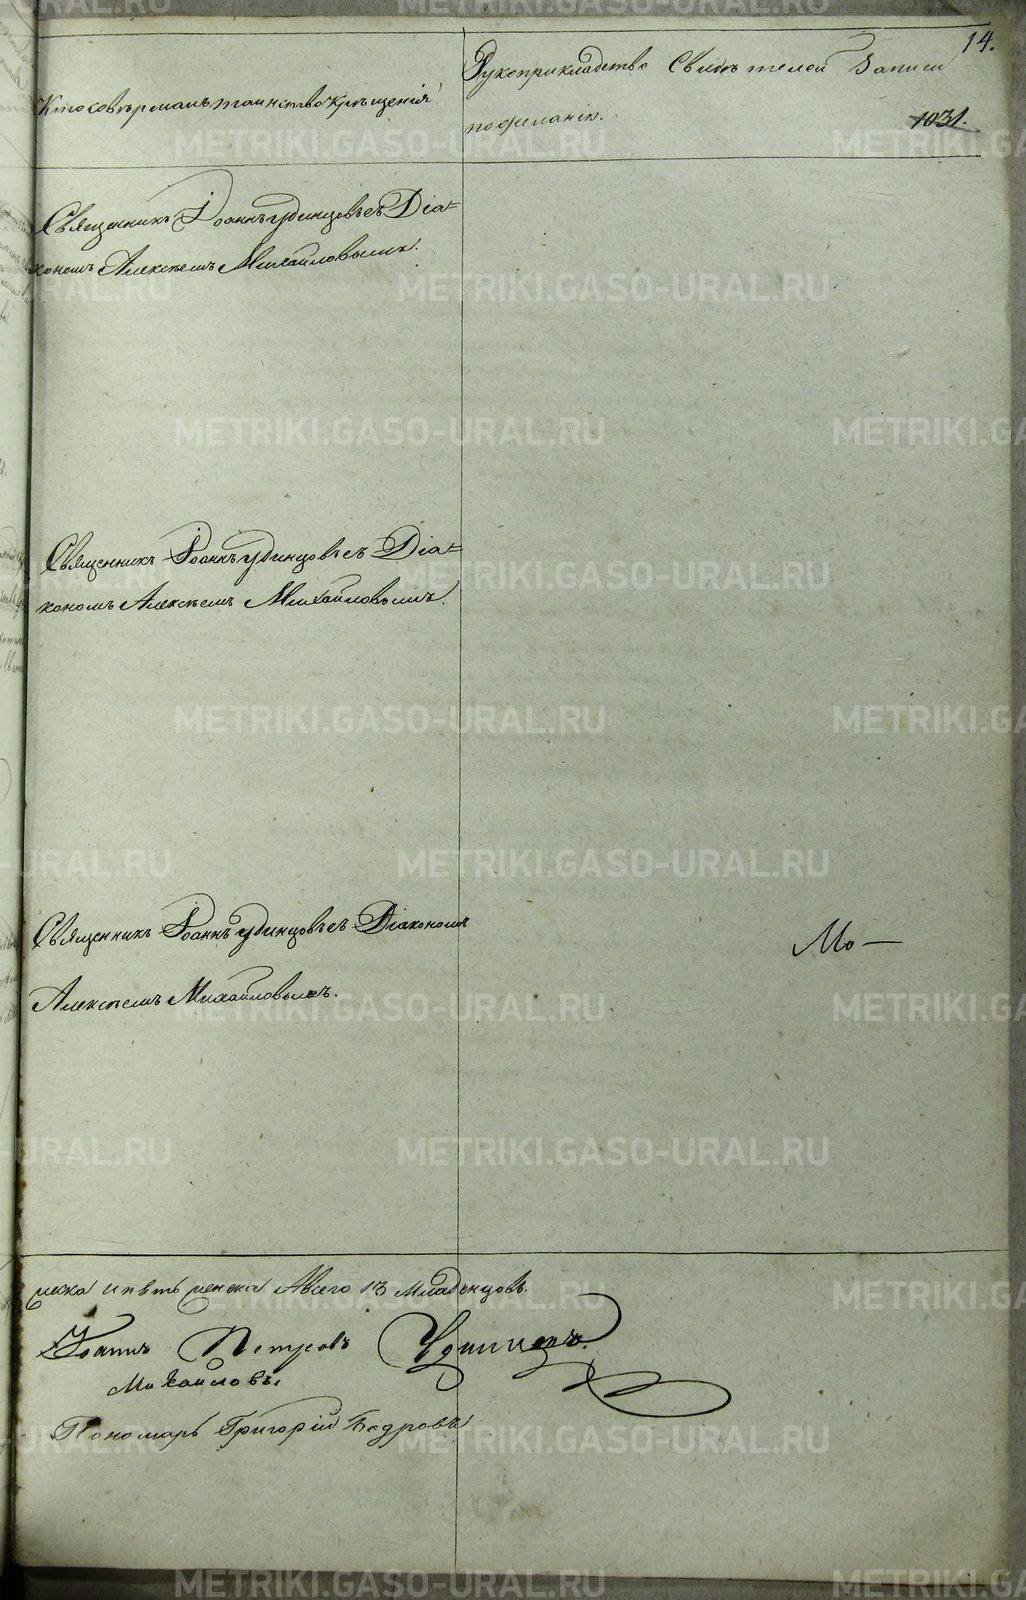 14.
Кто совършалъ таинство крѣщенія
Рукоприкладство Свидѣтелей Записи
по желанію.
1031.
Священникъ Іоаннъ Удинцовъ съ Діа=
кономъ Алексѣемъ Михайловымъ.
Священникъ Іоаннъ Удинцовъ съ Діа=
кономъ Алексѣемъ Михайловымъ.
Священникъ Іоаннъ Удинцовъ съ Діакономъ
Алексѣемъ Михайловымъ.
Мо —
песка и пять женска А всего 13 младенцовъ.
Іоаннъ Петровъ Удинцовъ.
Михайловъ.
Пономарь Григорій
METRIKI.GASO-URAL.RU